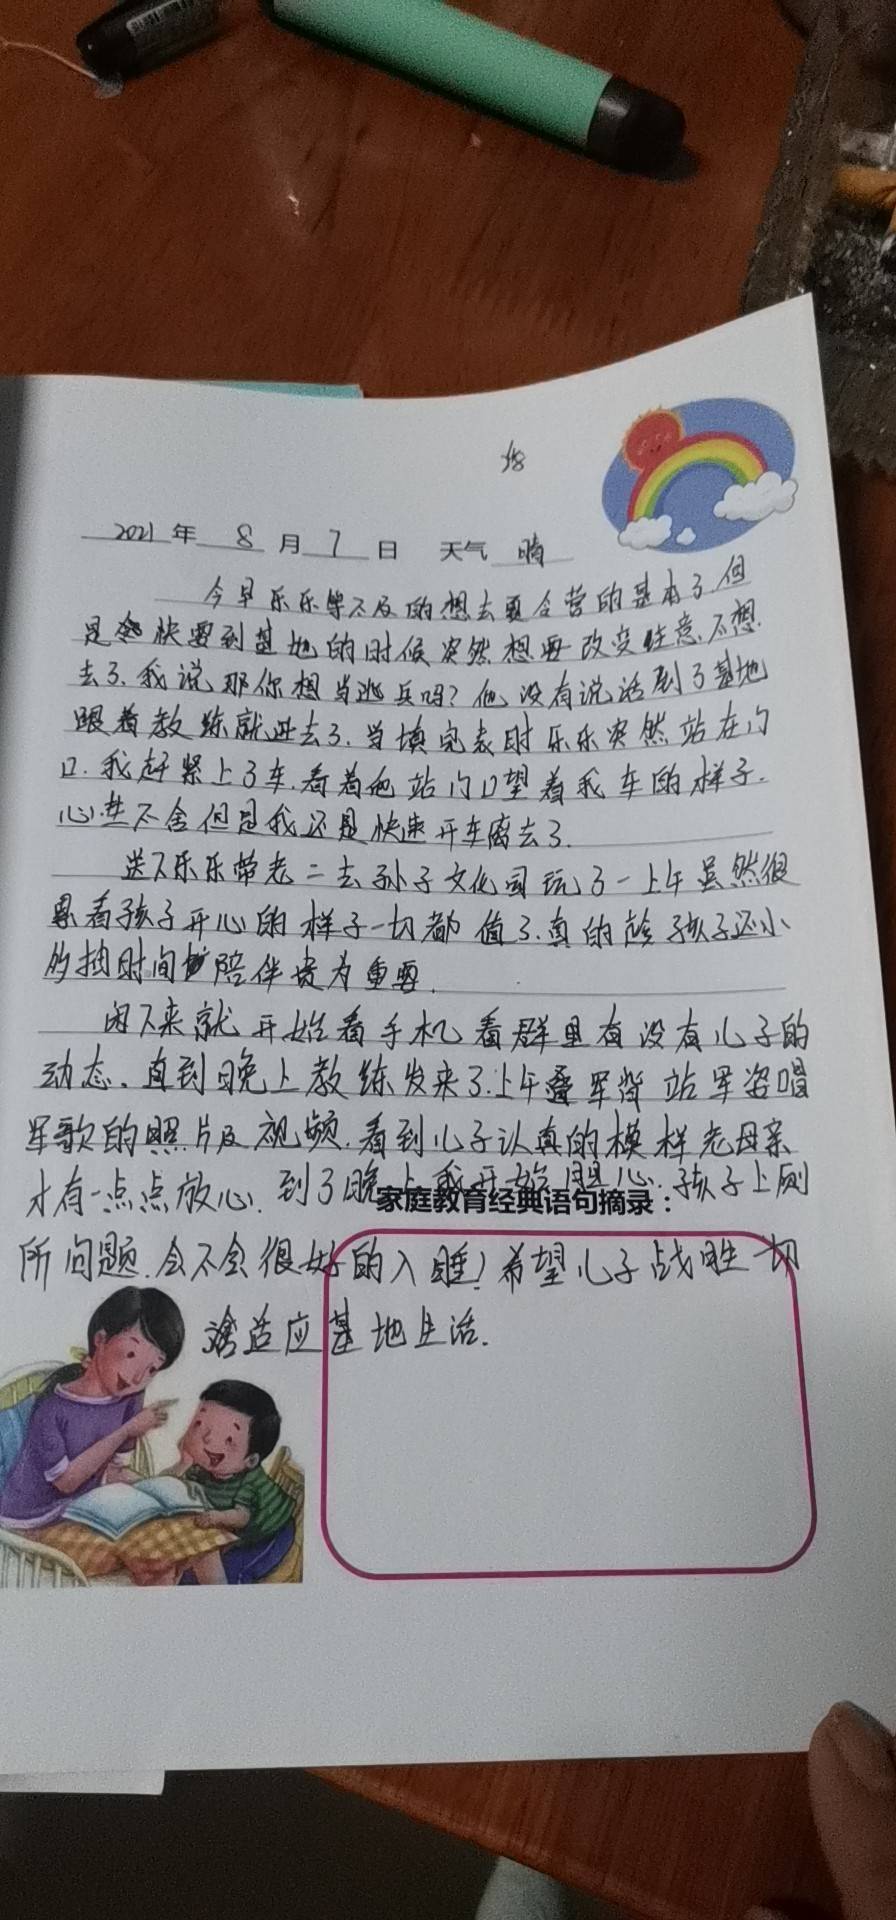 18
2021年 8 月 7 日 天气 晴
今早乐乐等不及的想去夏令营的基本了.但
是快要到基地的时候突然想要改变注意.不想
去了.我说那你想当逃兵吗?他没有说话到了基地
跟着教练就进去了.当填完表时乐乐突然站在门
口.我赶紧上了车.看着他站门口望着我车的样子.
心里不舍但是我还是快速开车离去了.
送下乐乐带老二去孙子文化园玩了一上午虽然很
累看孩子开心的样子一切都值了.真的趁孩子还小
多抽时间陪伴贵为重要.
闲下来就开始看手机看群里有没有儿子的
动态.直到晚上教练发来了.上午叠军背站军姿唱
军歌的照片及视频.看到儿子认真的模样老母亲
才有一点点放心.到了晚上我开始担心.孩子上厕
家庭教育经典语句摘录：
所问题.会不会很好的入睡!希望儿子战胜一切
适应基地生活.